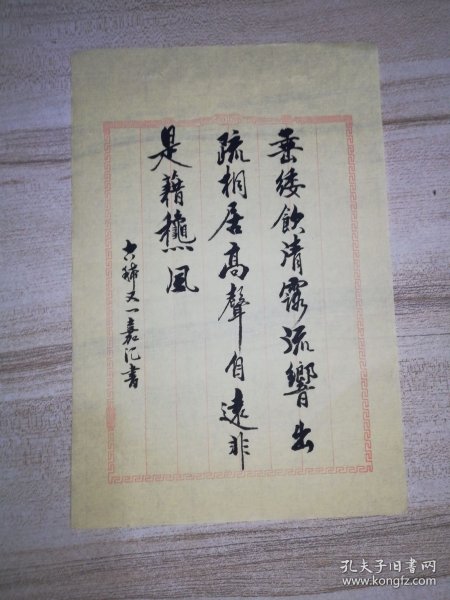 垂緌飲清露流響出
疏桐居高聲自遠非
是藉龝風
六穉又一嘉記書
孔夫子旧书网
www.kongfz.com